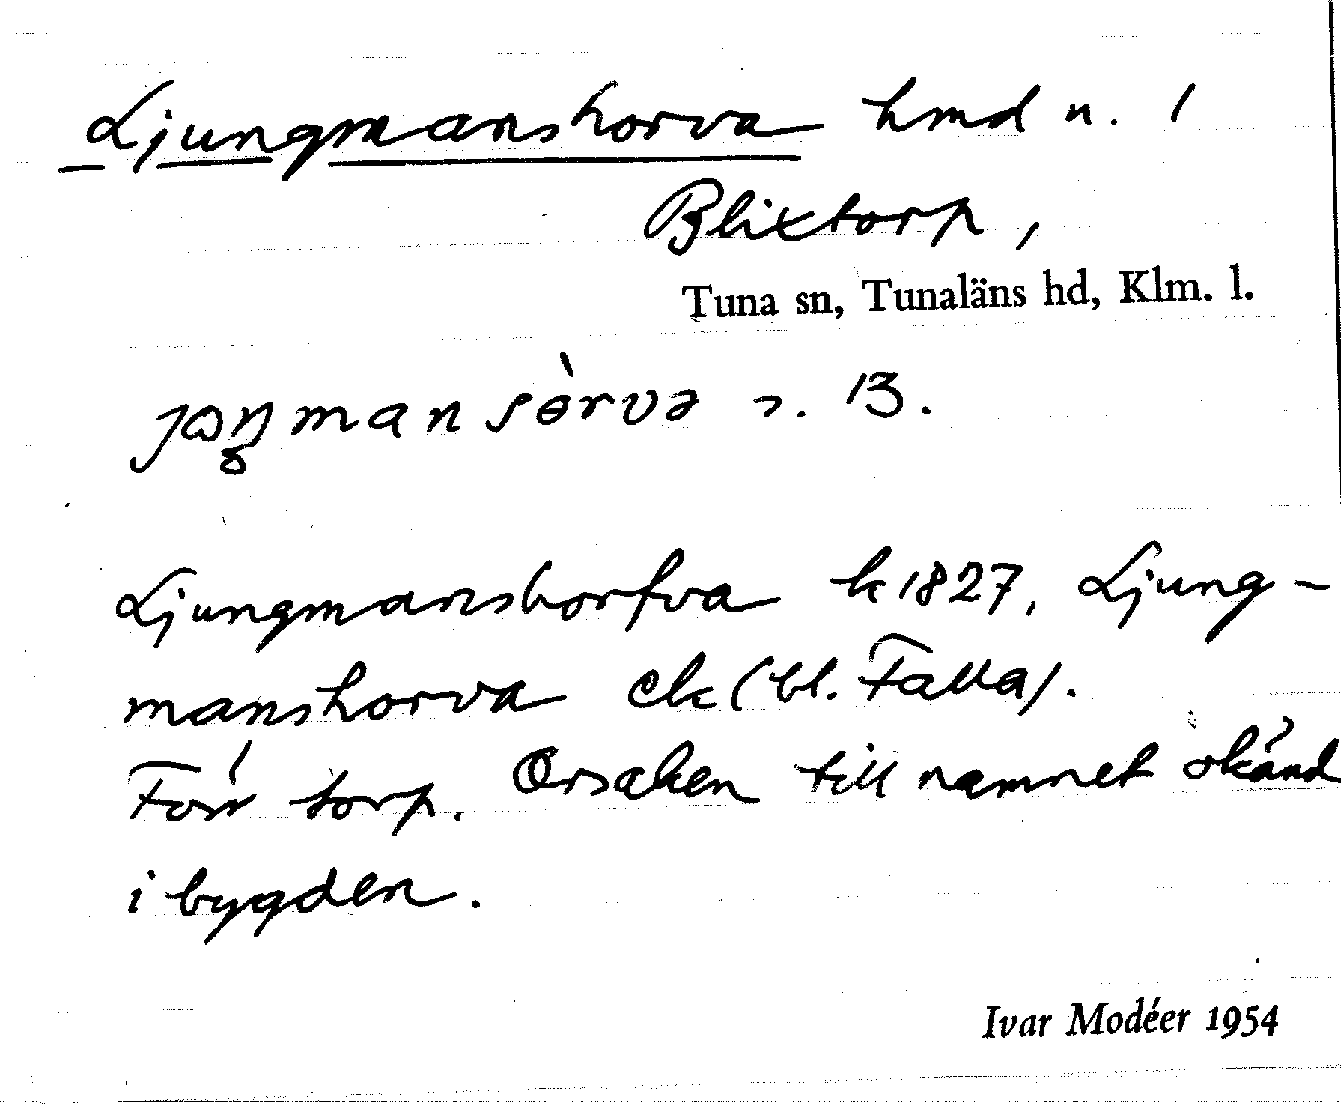 Ljungmanshorva hmd n. 1
Blixtorp,
Tuna sn, Tunaläns hd, Klm. l.
ɔ. 13.
Ljungmanshorfva k 1827, Ljung-
manshorva ek (bl. Falla).
Förr torp. Orsaken till namnet okänd
i bygden.
Ivar Modéer 1954